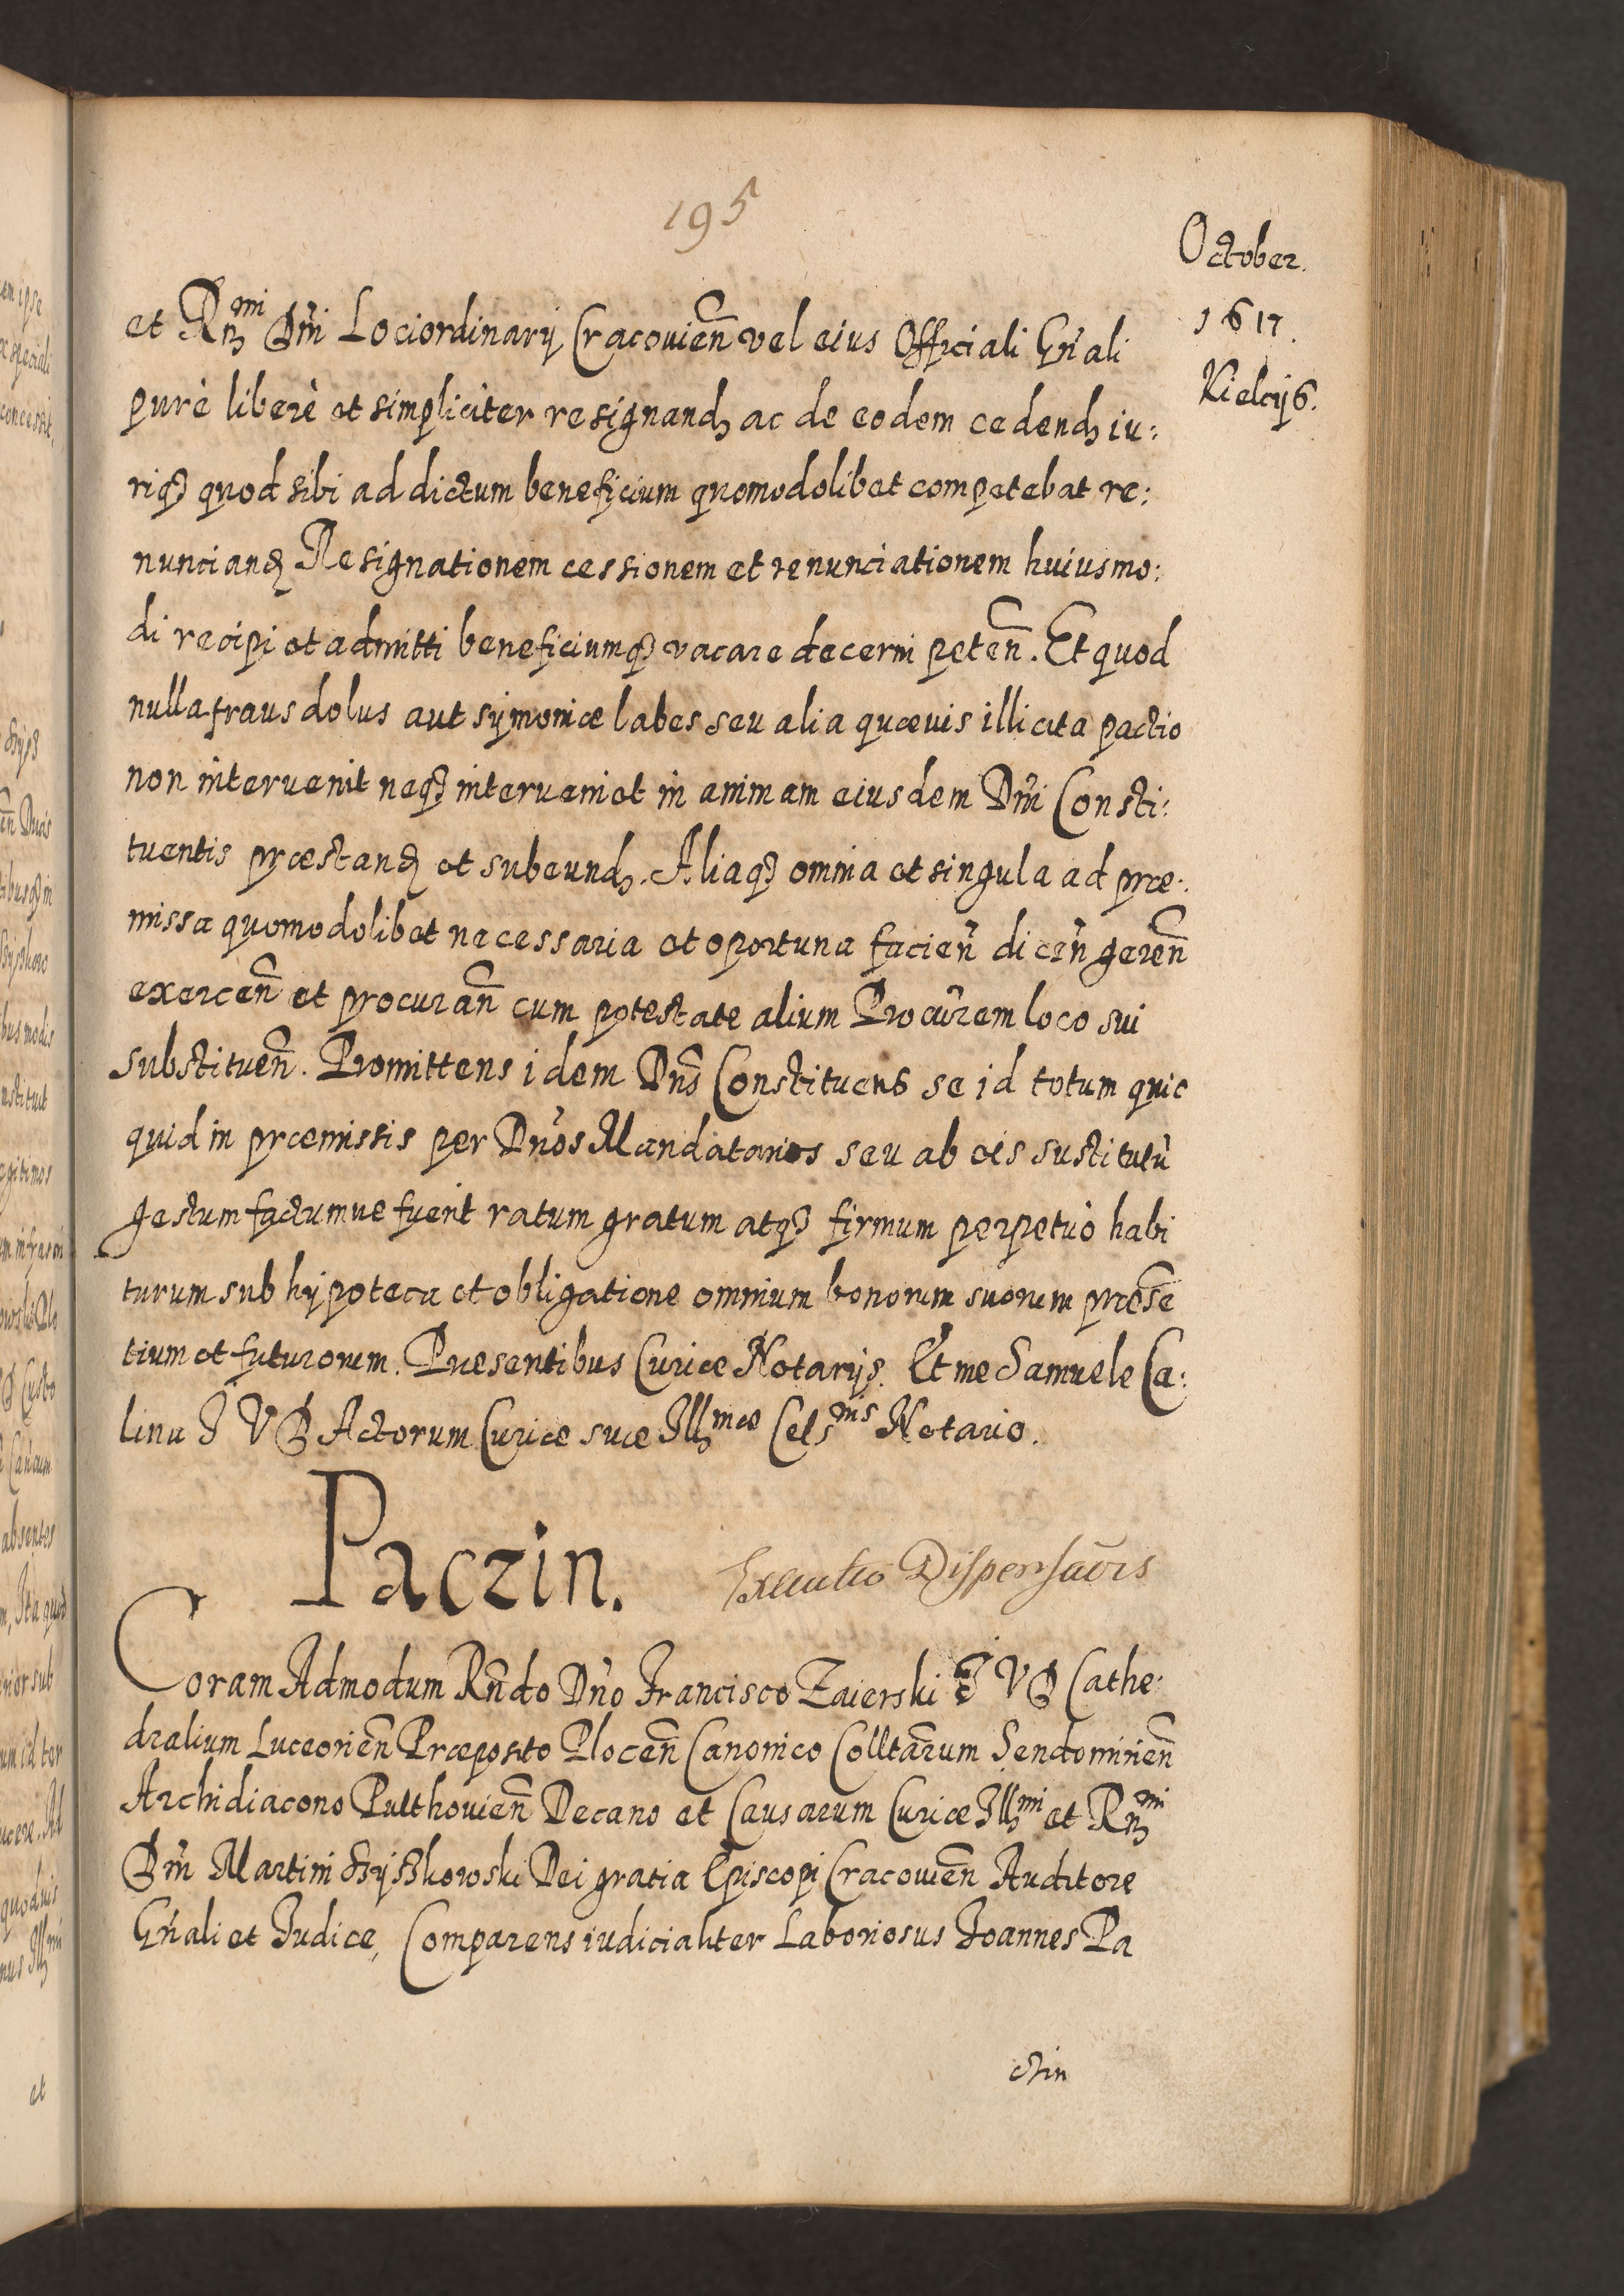 195
October.
1617.
Kielcijs.
et Rn͂mi Dn͂i Lociordinarij Cracouien͂ vel eius Officiali Gn͂ali
purè liberè et simpliciter resignand͂ ac de eodem cedend͂ iu:
riq3 quod sibi ad dictum beneficium quomodolibet competebat re:
nunciand͂ Resignationem cessionem et renunciationem huiusmo:
di recipi et admitti beneficiumq3 vacare decerni peten͂. Et quod
nulla fraus dolus aut sÿmoniæ labes seu alia quæuis illicita pactio
non interuenit neq3 interueniet in animam eiusdem Dn͂i Consti:
tuentis præstand͂ et subeund͂. Aliaq3 omnia et singula ad præ:
missa quomodolibet necessaria et oportuna facien͂ dicen͂ geren͂
exercen͂ et procuran͂ cum potestate alium Procu͂rem loco sui
substituen͂. Promittens idem Dn͂s Constituens se id totum quic
quid in præmissis per Dn͂os Mandatarios seu ab eis sustitutũ
gestum factumue fuerit ratum gratum atq3 firmum perpetuò habi
turum sub hÿpoteca et obligatione omnium bonorum suorum præse͂
tium et futurorum. Præsentibus Curiæ Notarijs. Et me Samuele Ca:
linu J V D Actorum Curiæ suæ Illmæ Celsnis Notario.
Paczin. Executio Dispensao͂is
Coram Admodum Rn͂do Dn͂o Francisco Zaierski J V D Cathe:
dralium Luceorien͂ Præposito Plocen͂ Canonico Collta͂rum Sendomirien͂
Archidiacono Pulthouien͂ Decano et Causarum Curiæ Illmi et Rn͂mi
Dn͂i Martini Szÿszkowski Dei gratia Episcopi Cracouien͂ Auditore
Gn͂ali et Judice, Comparens iudicialiter Laboriosus Joannes Pa
ctin